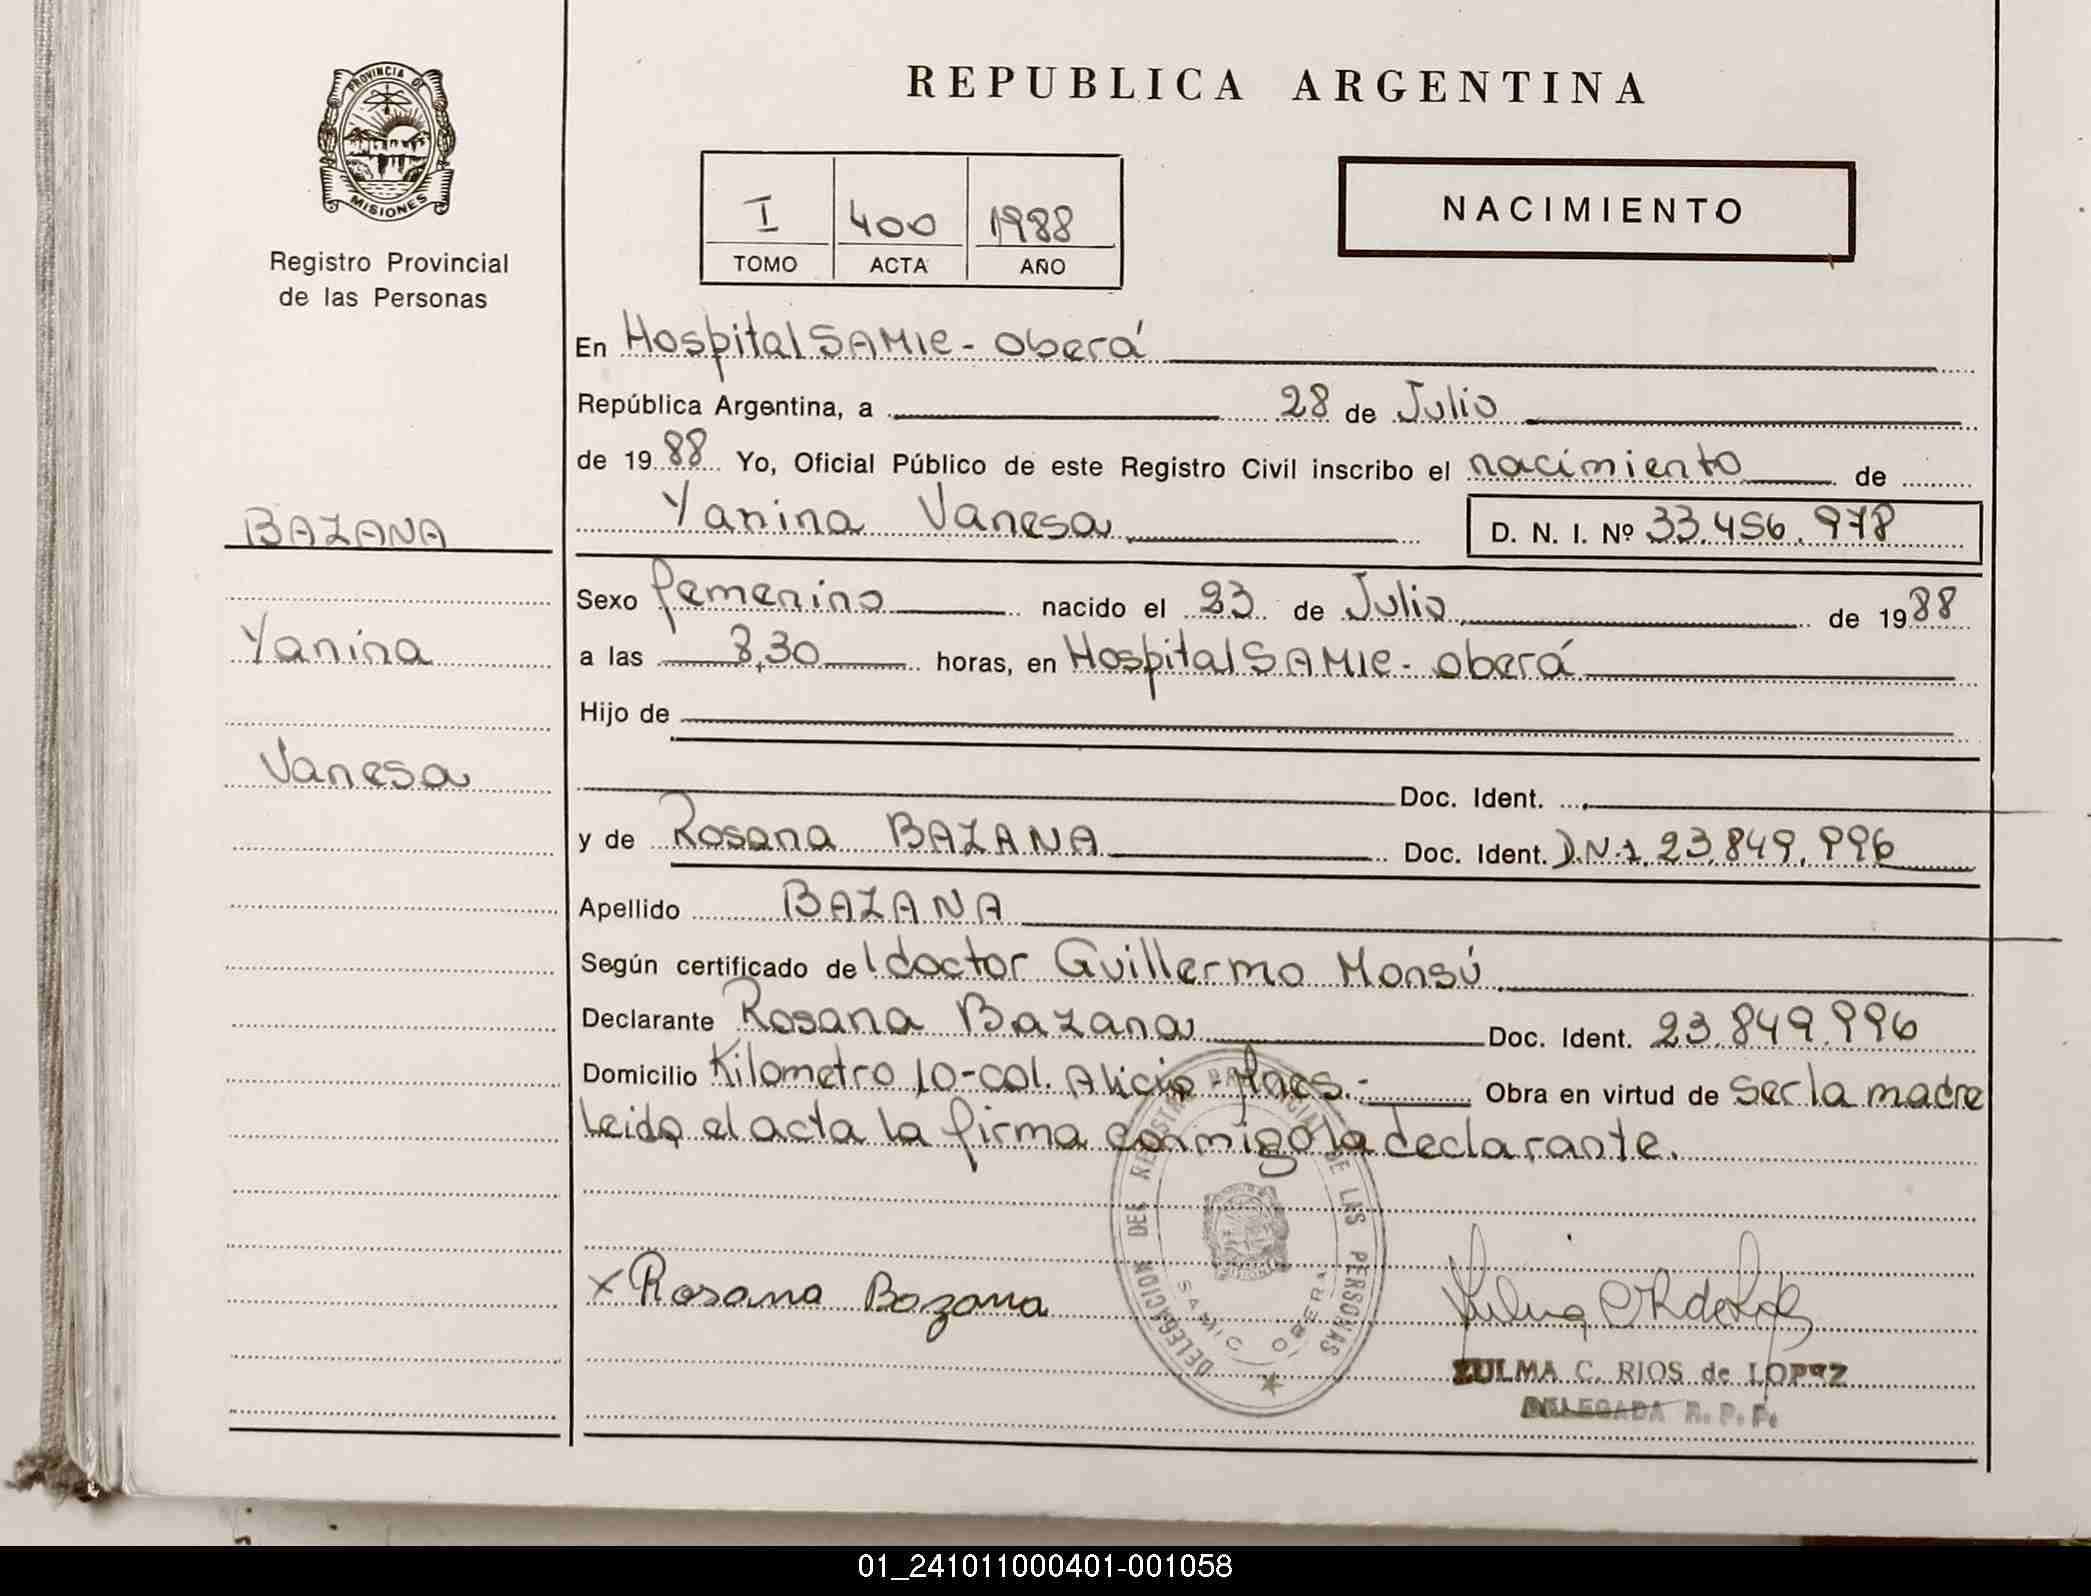 PROVINCIA DE
MISIONES
Registro Provincial
de las Personas
BAZANA
Yanina
Vanesa
REPUBLICA ARGENTINA
I 400 1988
TOMO ACTA AÑO
NACIMIENTO
En Hospital SAMIC - Oberá
República Argentina, a 28 de Julio
de 1988 Yo, Oficial Público de este Registro Civil inscribo el nacimiento de
Yanina Vanesa D. N. I. Nº 33.456.978
Sexo femenino nacido el 23 de Julio de 1988
a las 8,30 horas, en Hospital SAMIC - Oberá
Hijo de
Doc. Ident.
y de Rosana BAZANA Doc. Ident. D.N.I. 23.849.996
Apellido BAZANA
Según certificado del doctor Guillermo Monsú
Declarante Rosana Bazana Doc. Ident. 23.849.996
Domicilio Kilometro 10-col. Alicia - Mnes.- Obra en virtud de ser la madre
leida el acta la firma conmigo la declarante.
DELEGACION DEL REGISTRO PROVINCIAL DE LAS PERSONAS
SAMIC OBERA
x Rosana Bazana
ZULMA C. RIOS de LOPEZ
DELEGADA R. P. P.
01_241011000401-001058